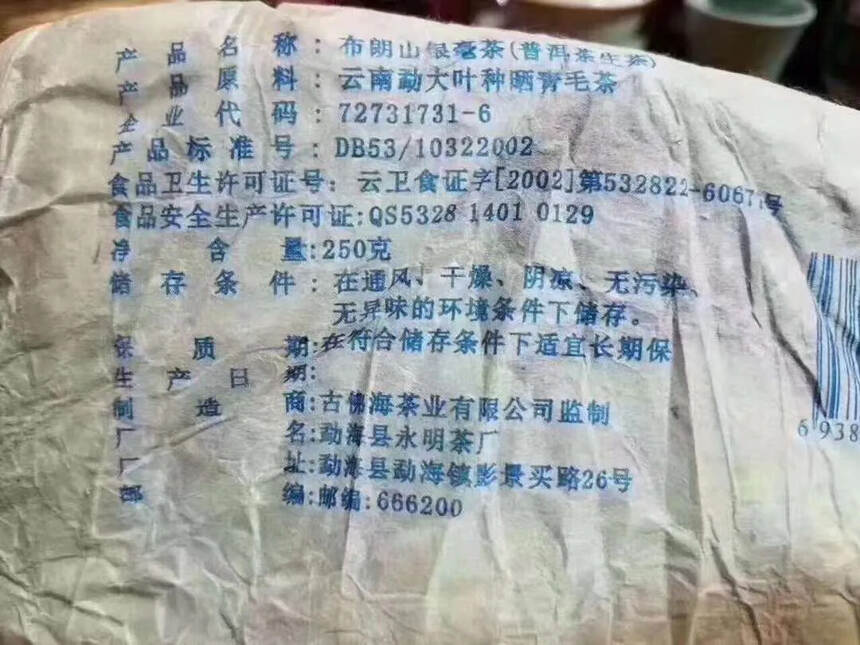 产品名称：布朗山银毫茶(普洱茶生茶)
产品原料：云南勐大叶种晒青毛茶
企业代码：72731731-6
产品标准号：DB53/10322002
食品卫生许可证号：云卫食证字[2002]第532822-6067号
食品安全生产许可证:QS5328 1401 0129
净含量:250克
储存条件：在通风、干燥、阴凉、无污染、
无异味的环境条件下储存。
保质期:在符合储存条件下适宜长期保
生产日期:
制造商:古佛海茶业有限公司监制
厂名:勐海县永明茶厂
厂址:勐海县勐海镇影景买路26号
邮编:邮编:666200
6 938